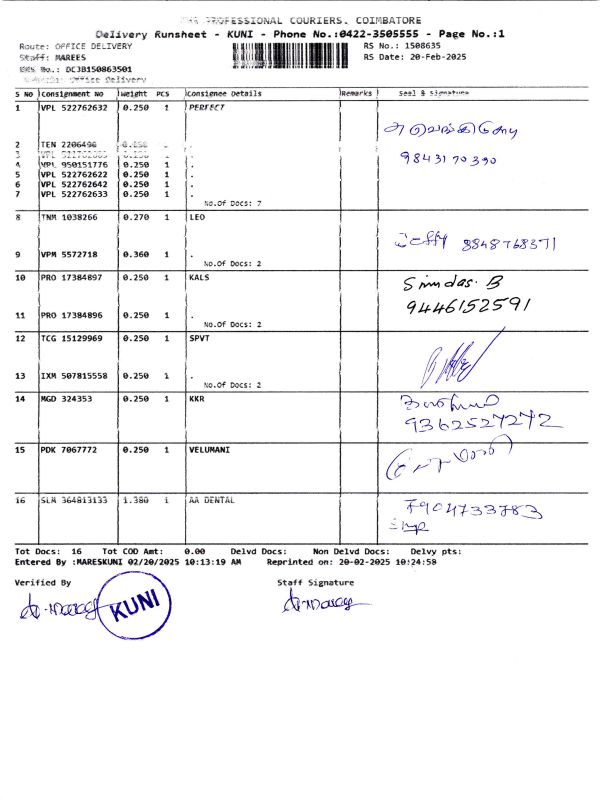 THE PROFESSIONAL COURIERS, COIMBATORE
Delivery Runsheet - KUNI - Phone No.:0422-3505555 - Page No.:1
Route: OFFICE DELIVERY RS No.: 1508635
Staff: MAREES RS Date: 20-Feb-2025
DRS No.: DCJB150863501
Office Delivery
S NO Consignment No Weight PCS Consignee Details Remarks Seal & Signature
1 VPL 522762632 0.250 1 PERFECT
2 TEN 2206490 1 .
9843170390
3 VPL 1 .
4 VPL 950151776 0.250 1 .
5 VPL 522762622 0.250 1 .
6 VPL 522762642 0.250 1 .
7 VPL 522762633 0.250 1 .
No.Of Docs: 7
8 TNM 1038266 0.270 1 LEO
Jeffy 8848768371
9 VPM 5572718 0.360 1 .
No.Of Docs: 2
10 PRO 17384897 0.250 1 KALS
B
9446152591
11 PRO 17384896 0.250 1 .
No.Of Docs: 2
12 TCG 15129969 0.250 1 SPVT
13 IXM 507815558 0.250 1 .
No.Of Docs: 2
14 MGD 324353 0.250 1 KKR
9362527272
15 PDK 7067772 0.250 1 VELUMANI
16 SLM 364813133 1.380 1 AA DENTAL
7904733783
Tot Docs: 16 Tot COD Amt: 0.00 Delvd Docs: Non Delvd Docs: Delvy pts:
Entered By :MARESKUNI 02/20/2025 10:13:19 AM Reprinted on: 20-02-2025 10:24:58
Verified By Staff Signature
KUNI